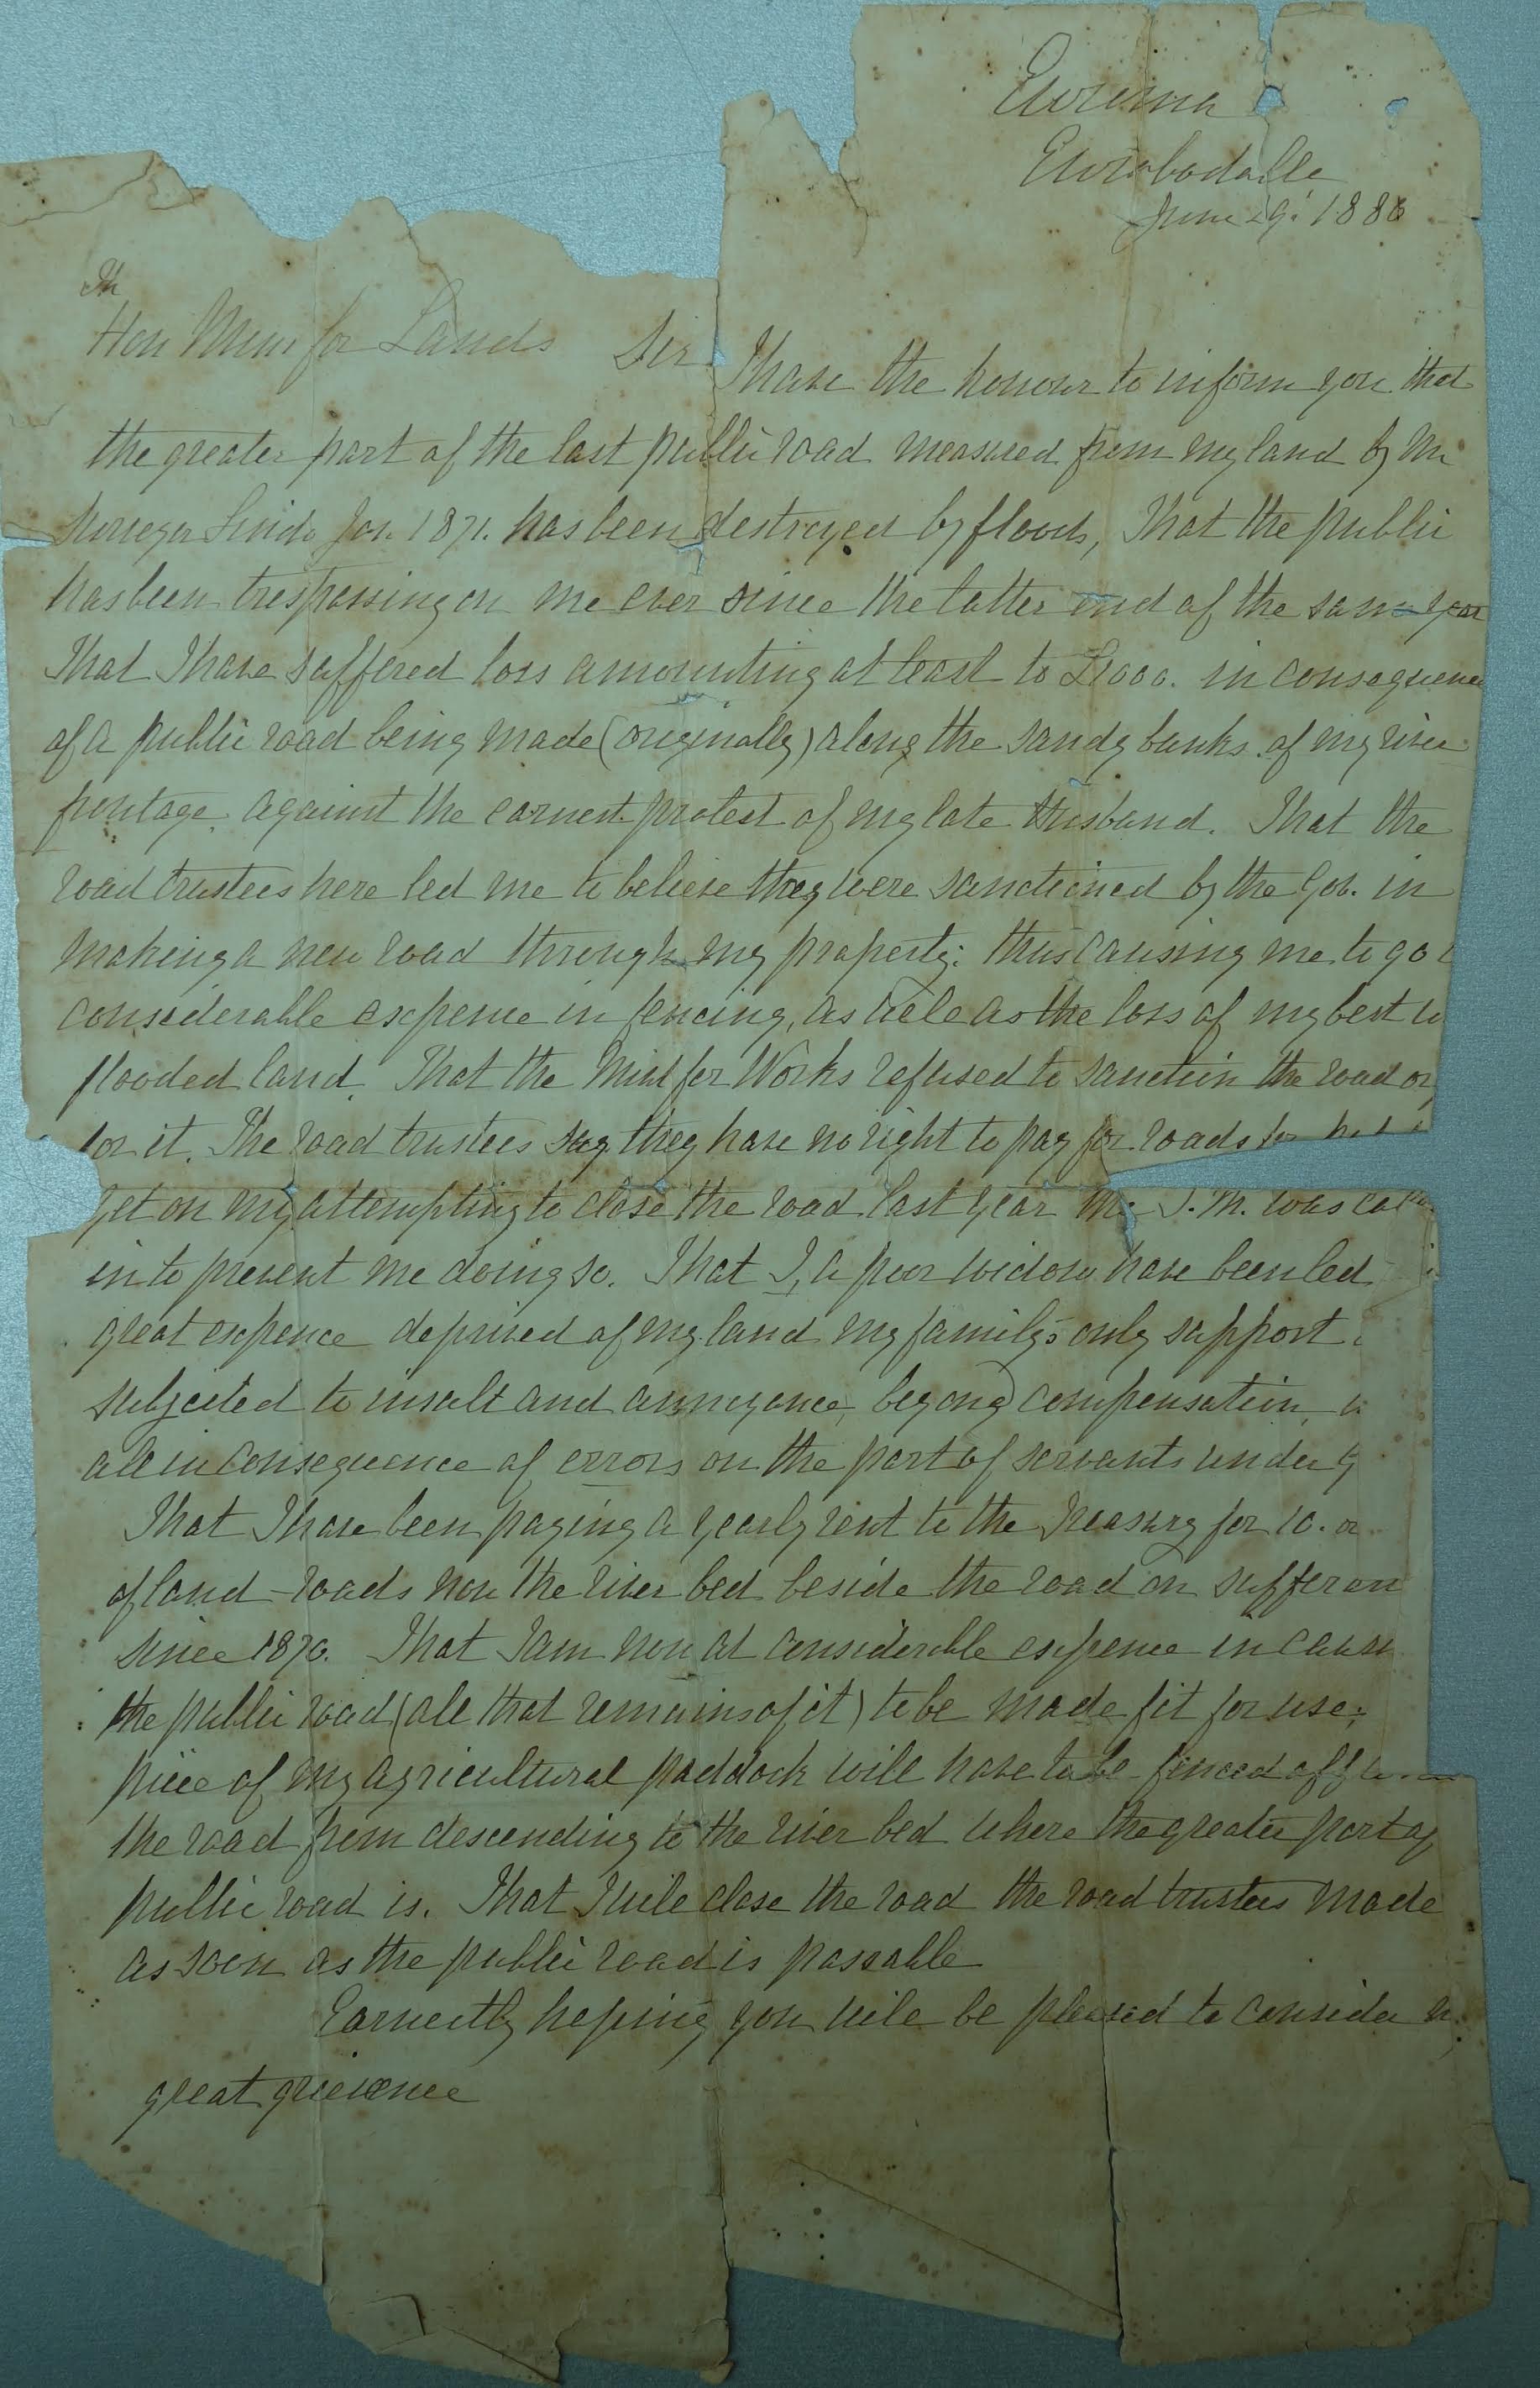 Eurobodalle
June 29. 1886
The
Hon Minr for Lands Sir
I have the honour to inform you that
the greater part of the last public road measured from my land by Mr
Jan. 1871. has been destroyed by floods, That the public
has been trespassing on me ever since the latter end of the same year
That I have suffered loss amounting at least to £1000. in consequence
of a public road being made (originally) along the sandy banks of my river
frontage against the earnest protest of my late Husband. That the
road trustees here led me to believe they were sanctioned by the Gov. in
making a new road through my property: thus causing me to go
considerable expence in fencing, as well as the loss of my best
flooded land. That the Minr for Works refused to sanction the road or
for it. The road trustees say they have no right to pay for roads
yet on my attempting to close the road last year Mr J. M. was
in to prevent me doing so. That I, a poor widow have been led
great expence deprived of my land my family's only support
subjected to insult and annoyance, beyond compensation,
all in consequence of errors on the part of servants under
That I have been paying a yearly rent to the Treasury for 10. or
of land - roads now the river bed beside the road on sufferan
since 1870. That I am now at considerable expence in caus
the public road (all that remains of it) to be made fit for use;
piece of my agricultural paddock will have to be fenced off
the road from descending to the river bed where the greater part of
public road is. That I will close the road the road trustees made
as soon as the public road is passable
Earnestly hoping you will be pleased to consider
great grievence